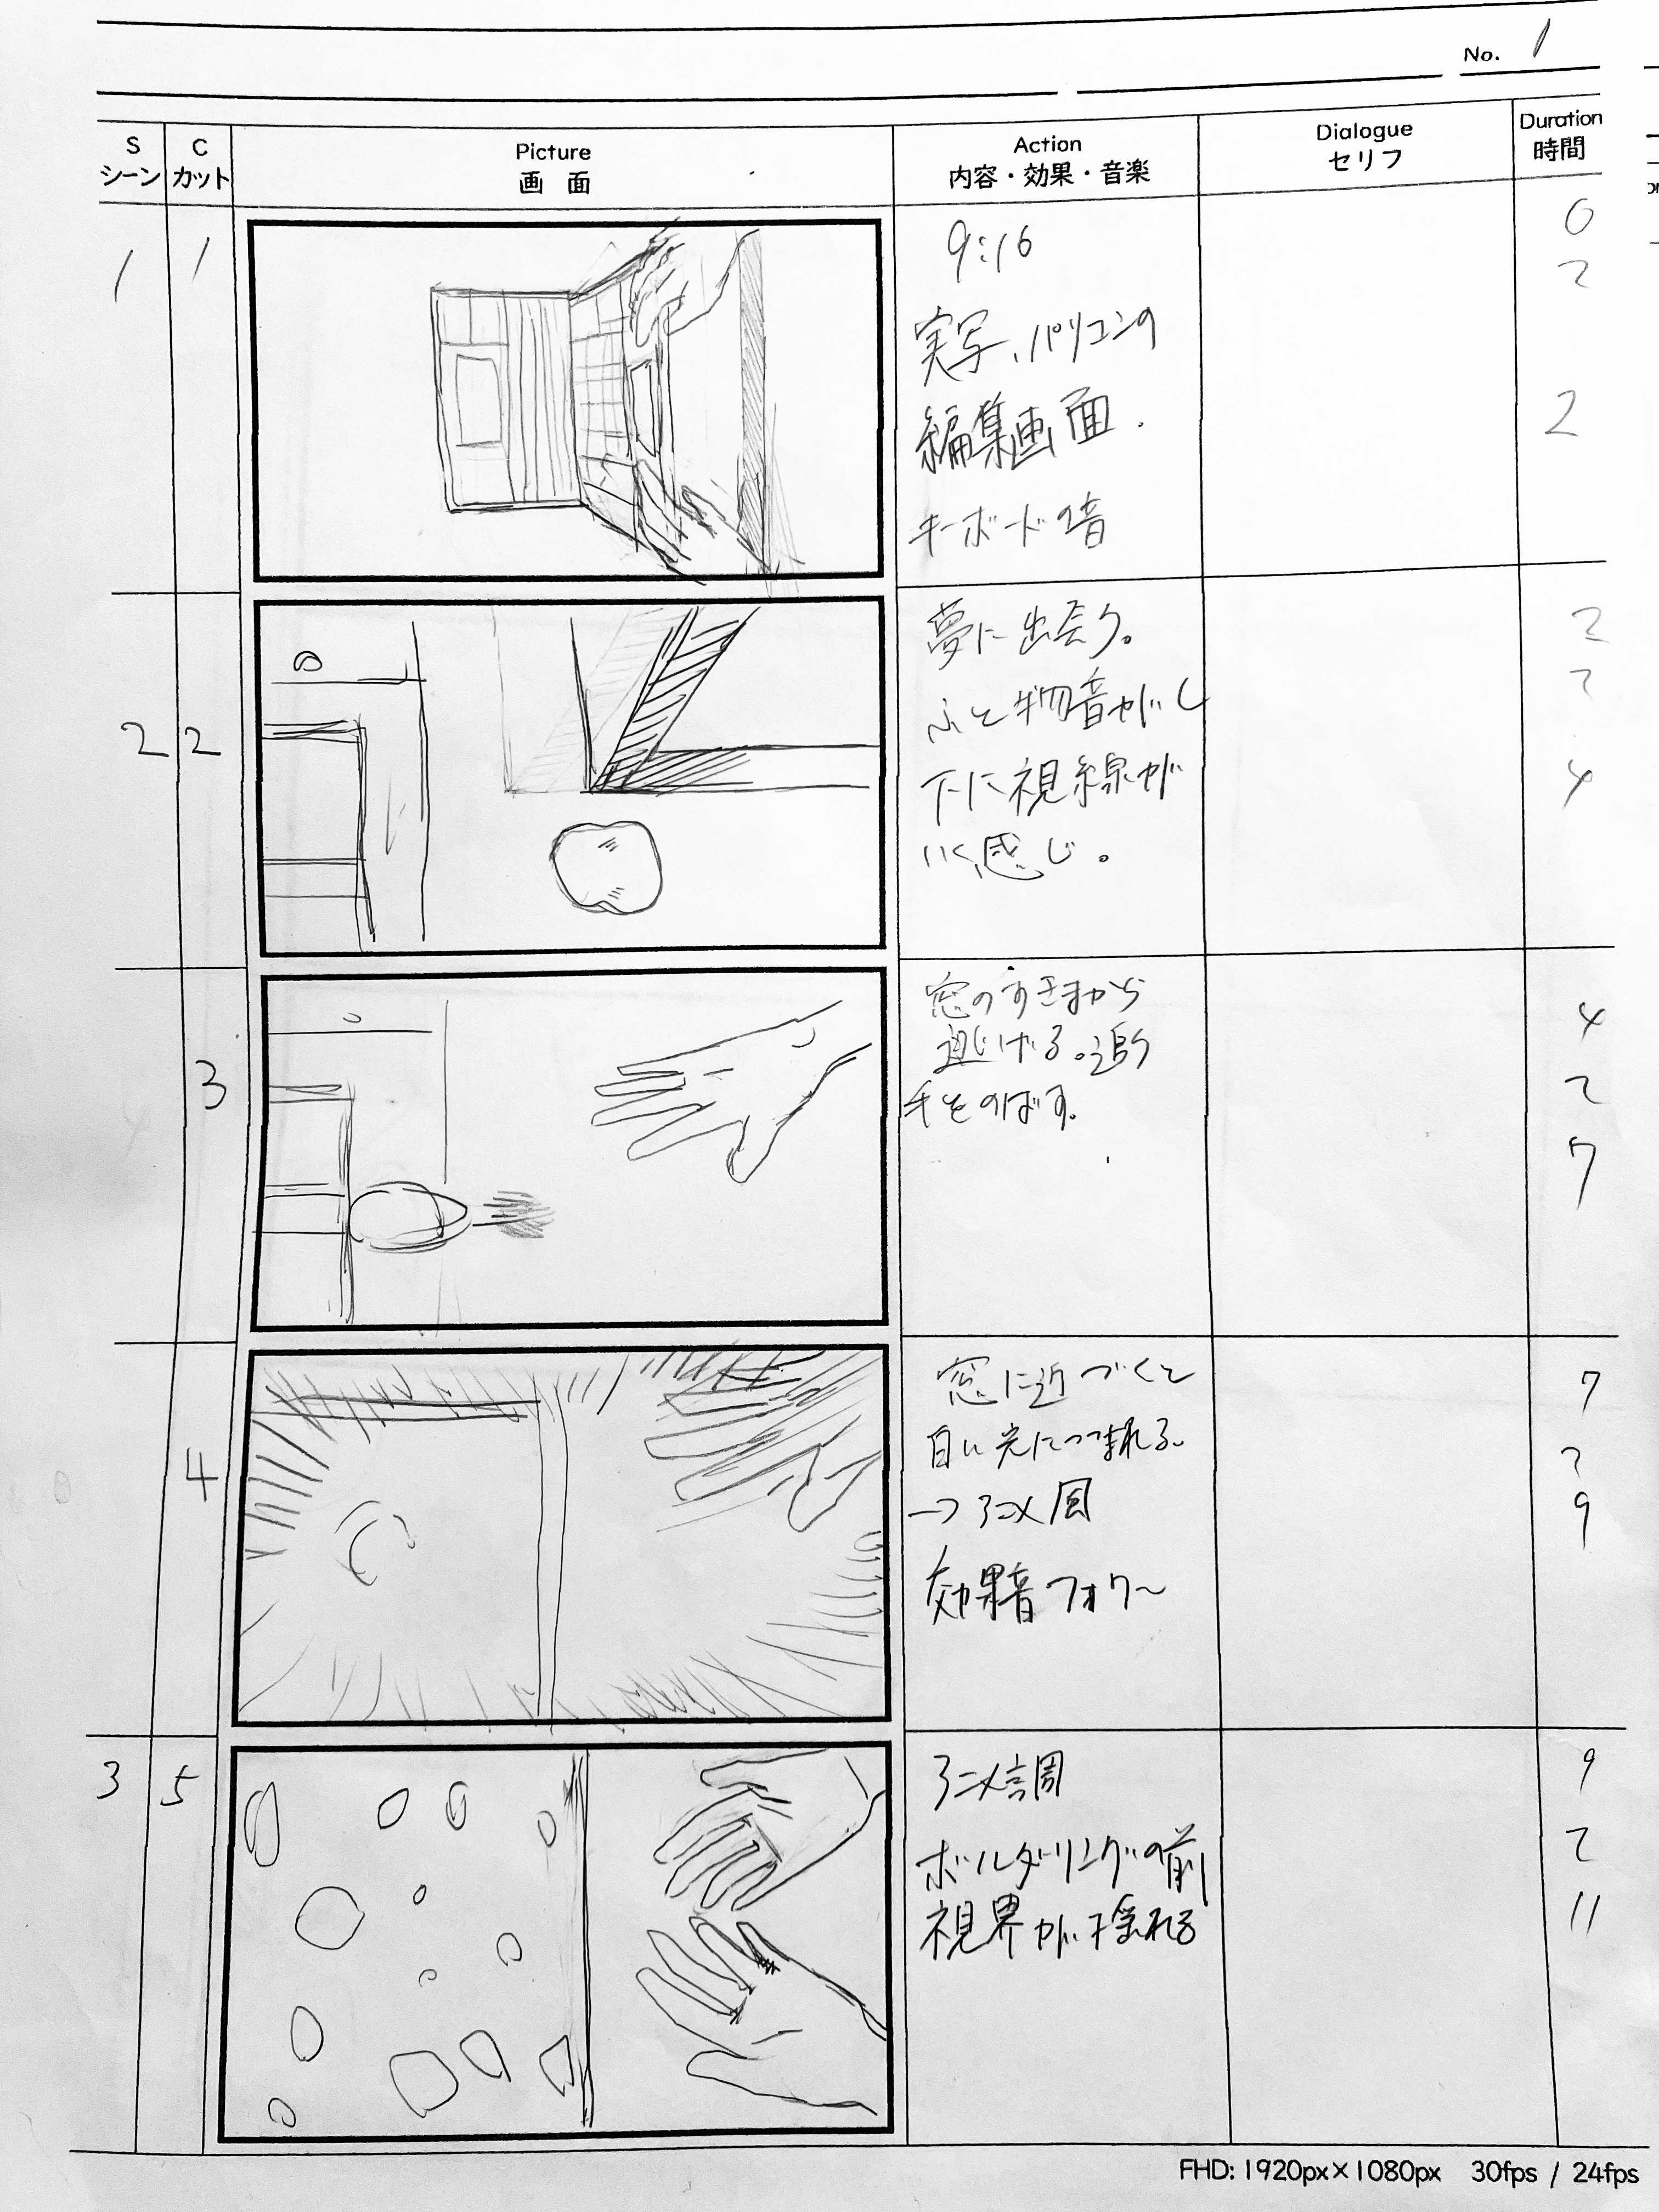 No. 1
S C Picture Action Dialogue Duration
シーン カット 画 面 内容・効果・音楽 セリフ 時間
1 1
9:16
実写、パソコンの
編集画面.
キーボードの音
0
2
2
2 2
夢に出会う。
ふと物音がし
下に視線が
いく感じ。
2
2
4
3
窓のすきまから
逃げる。追う
手をのばす。
4
2
7
4
窓に近づくと
白い光につつまれる。
→アニメ風
効果音フォワ〜
7
2
9
3 5
アニメ調
ボルダリングの前
視界が揺れる
9
2
11
FHD: 1920px×1080px 30fps / 24fps